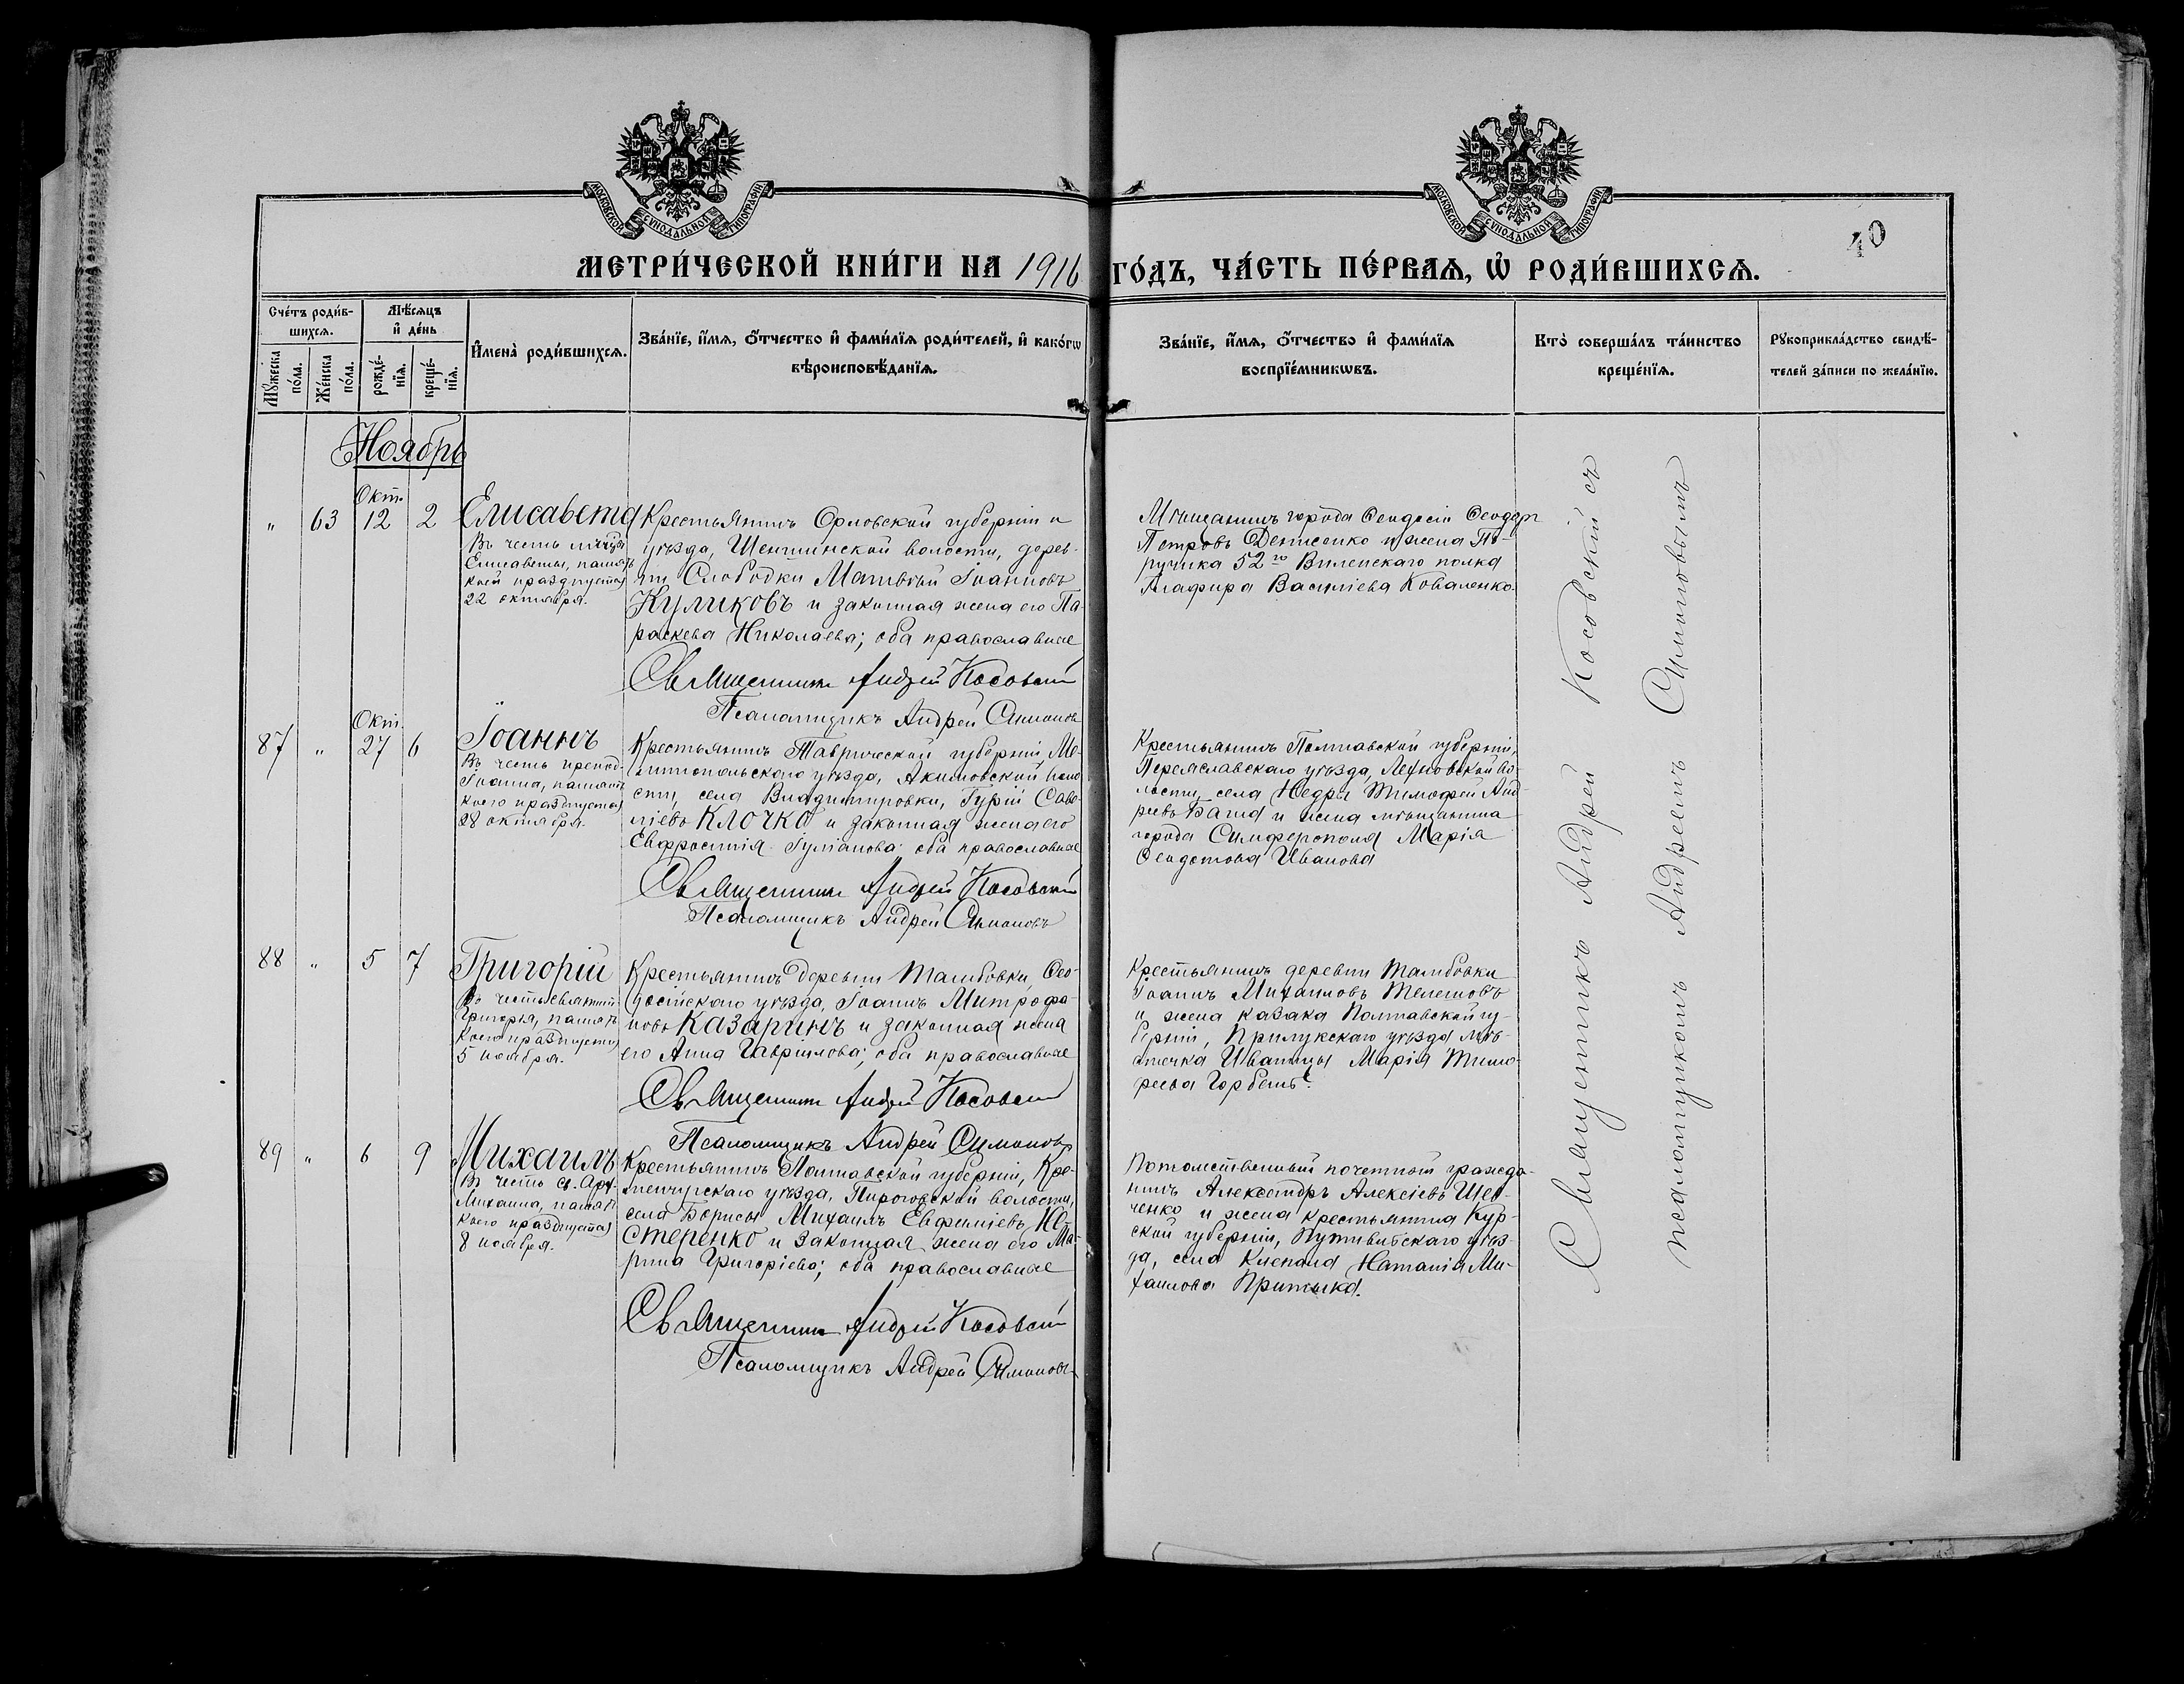 МОСКОВСКОЙ СУНОДАЛЬНОЙ ТИПОГРАФІИ
МОСКОВСКОЙ СУНОДАЛЬНОЙ ТИПОГРАФІИ
40
МЕТРИ́ЧЕСКОЙ КНИ́ГИ НА 1916 ГО́ДЪ, ЧА́СТЬ ПЕ́РВАѦ, Ѡ҆ РОДИ́ВШИХСѦ.
Сче́тъ роди́в-
шихсѧ.
Мꙋ́жеска по́ла.
Же́нска по́ла.
Мѣ́сѧцъ
и҆ де́нь
рожде́-
нїѧ.
креще́-
нїѧ.
И҆мена̀ роди́вшихсѧ.
Зва́нїе, и҆́мѧ, ѻ҆́тчество и҆ фами́лїѧ роди́телей, и҆ како́гѡ
вѣроисповѣ́данїѧ.
Зва́нїе, и҆́мѧ, ѻ҆́тчество и҆ фами́лїѧ
воспрїе́мникѡвъ.
Кто̀ соверша́лъ та́инство
креще́нїѧ.
Рꙋкоприкла́дство свидѣ́-
телей за́писи по жела́нїю.
Ноябрь
Окт.
" 63 12 2
Елисавета
Въ честь мчцы
Елисаветы, память
коей празднуется
22 октября.
Крестьянинъ Орловской губерніи и
уѣзда, Шеншинской волости, дерев-
ни Слободки Матвѣй Іоанновъ
Куликовъ и законная жена его Па-
раскева Николаева; оба православные
Священникъ Андрей Косовскій
Псаломщикъ Андрей Симоновъ
Мѣщанинъ города Ѳеодосіи Ѳеодоръ
Петровъ Денисенко и жена По-
ручика 52го Виленскаго полка
Глафира Васильева Коваленко.
Окт.
87 " 27 6
Іоаннъ
Въ честь препод.
Іоанна, память
коего празднуется
28 октября.
Крестьянинъ Таврической губерніи, Ме-
литопольскаго уѣзда, Акимовской воло-
сти, села Владиміровки, Гурій Саве-
ліевъ Клочко и законная жена его
Евфросинія Іуліанова; оба православные
Священникъ Андрей Косовскій
Псаломщикъ Андрей Симоновъ
Крестьянинъ Полтавской губерніи,
Переяславскаго уѣзда, во-
лости, села Недры Тимофей Анд-
реевъ Баша и жена мѣщанина
города Симферополя Марія
Ѳеодотова Иванова
88 " 5 7
Григорій
Въ честь святит.
Григорія, память
коего празднуется
5 ноября.
Крестьянинъ деревни Тамбовки, Ѳео-
досійскаго уѣзда, Іоаннъ Митрофа-
новъ Казаринъ и законная жена
его Анна Гавріилова; оба православные
Священникъ Андрей Косовскій
Псаломщикъ Андрей Симоновъ
Крестьянинъ деревни Тамбовки
Іоаннъ Михаиловъ Телешовъ
и жена казака Полтавской гу-
берніи, Прилукскаго уѣзда мѣ-
стечка Иваницы Марія Тимо-
феева
89 " 6 9
Михаилъ
Въ честь Св. Арх.
Михаила, память
коего празднуется
8 ноября.
Крестьянинъ Полтавской губерніи, Кре-
менчугскаго уѣзда, Пироговской волости,
села Борисы Михаилъ Евфиміевъ Не-
стеренко и законная жена его Ма-
рина Григоріева; оба православные
Священникъ Андрей Косовскій
Псаломщикъ Андрей Симоновъ
Потомственный почетный гражда-
нинъ Александръ Алексіевъ Шев-
ченко и жена крестьянина Кур-
ской губерніи, Путивльскаго уѣз-
да, села Клепала Наталія Ми-
хаилова Притыка.
Священникъ Андрей Косовскій съ
псаломщикомъ Андреемъ Симоновымъ